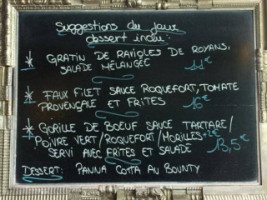 Suggestions du jour
dessert inclu:
* GRATIN DE RAVIOLES DE ROYANS,
SALADE MÉLANGEE 11€
* FAUX FILET SAUCE ROQUEFORT, TOMATE
PROVENÇALE ET FRITES 15€
* GORILLE DE BOEUF SAUCE TARTARE/
POIVRE VERT/ROQUEFORT/MORILLES+2€
SERVI AVEC FRITES ET SALADE 13,5€
DESSERT: PANNA COTTA AU BOUNTY